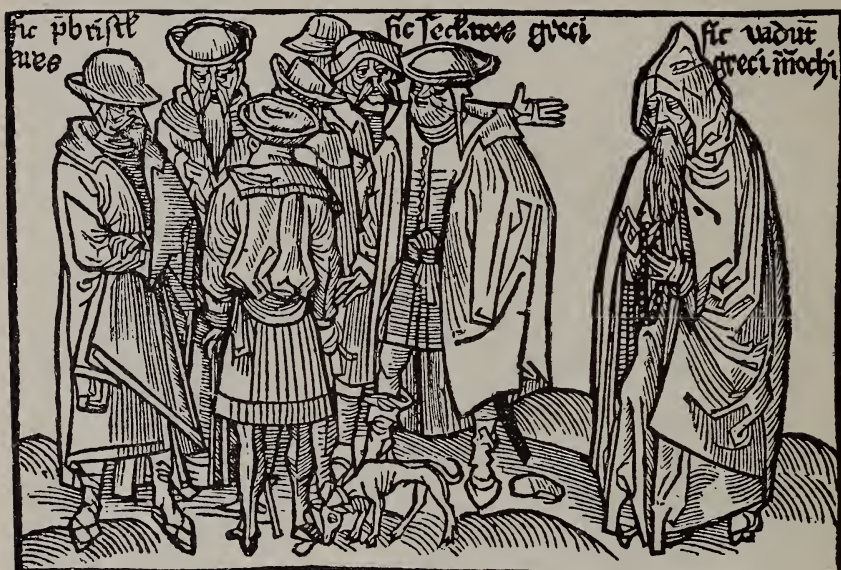 sic p̄bri
sic seclares greci
sic vadūt
greci m̄ochi